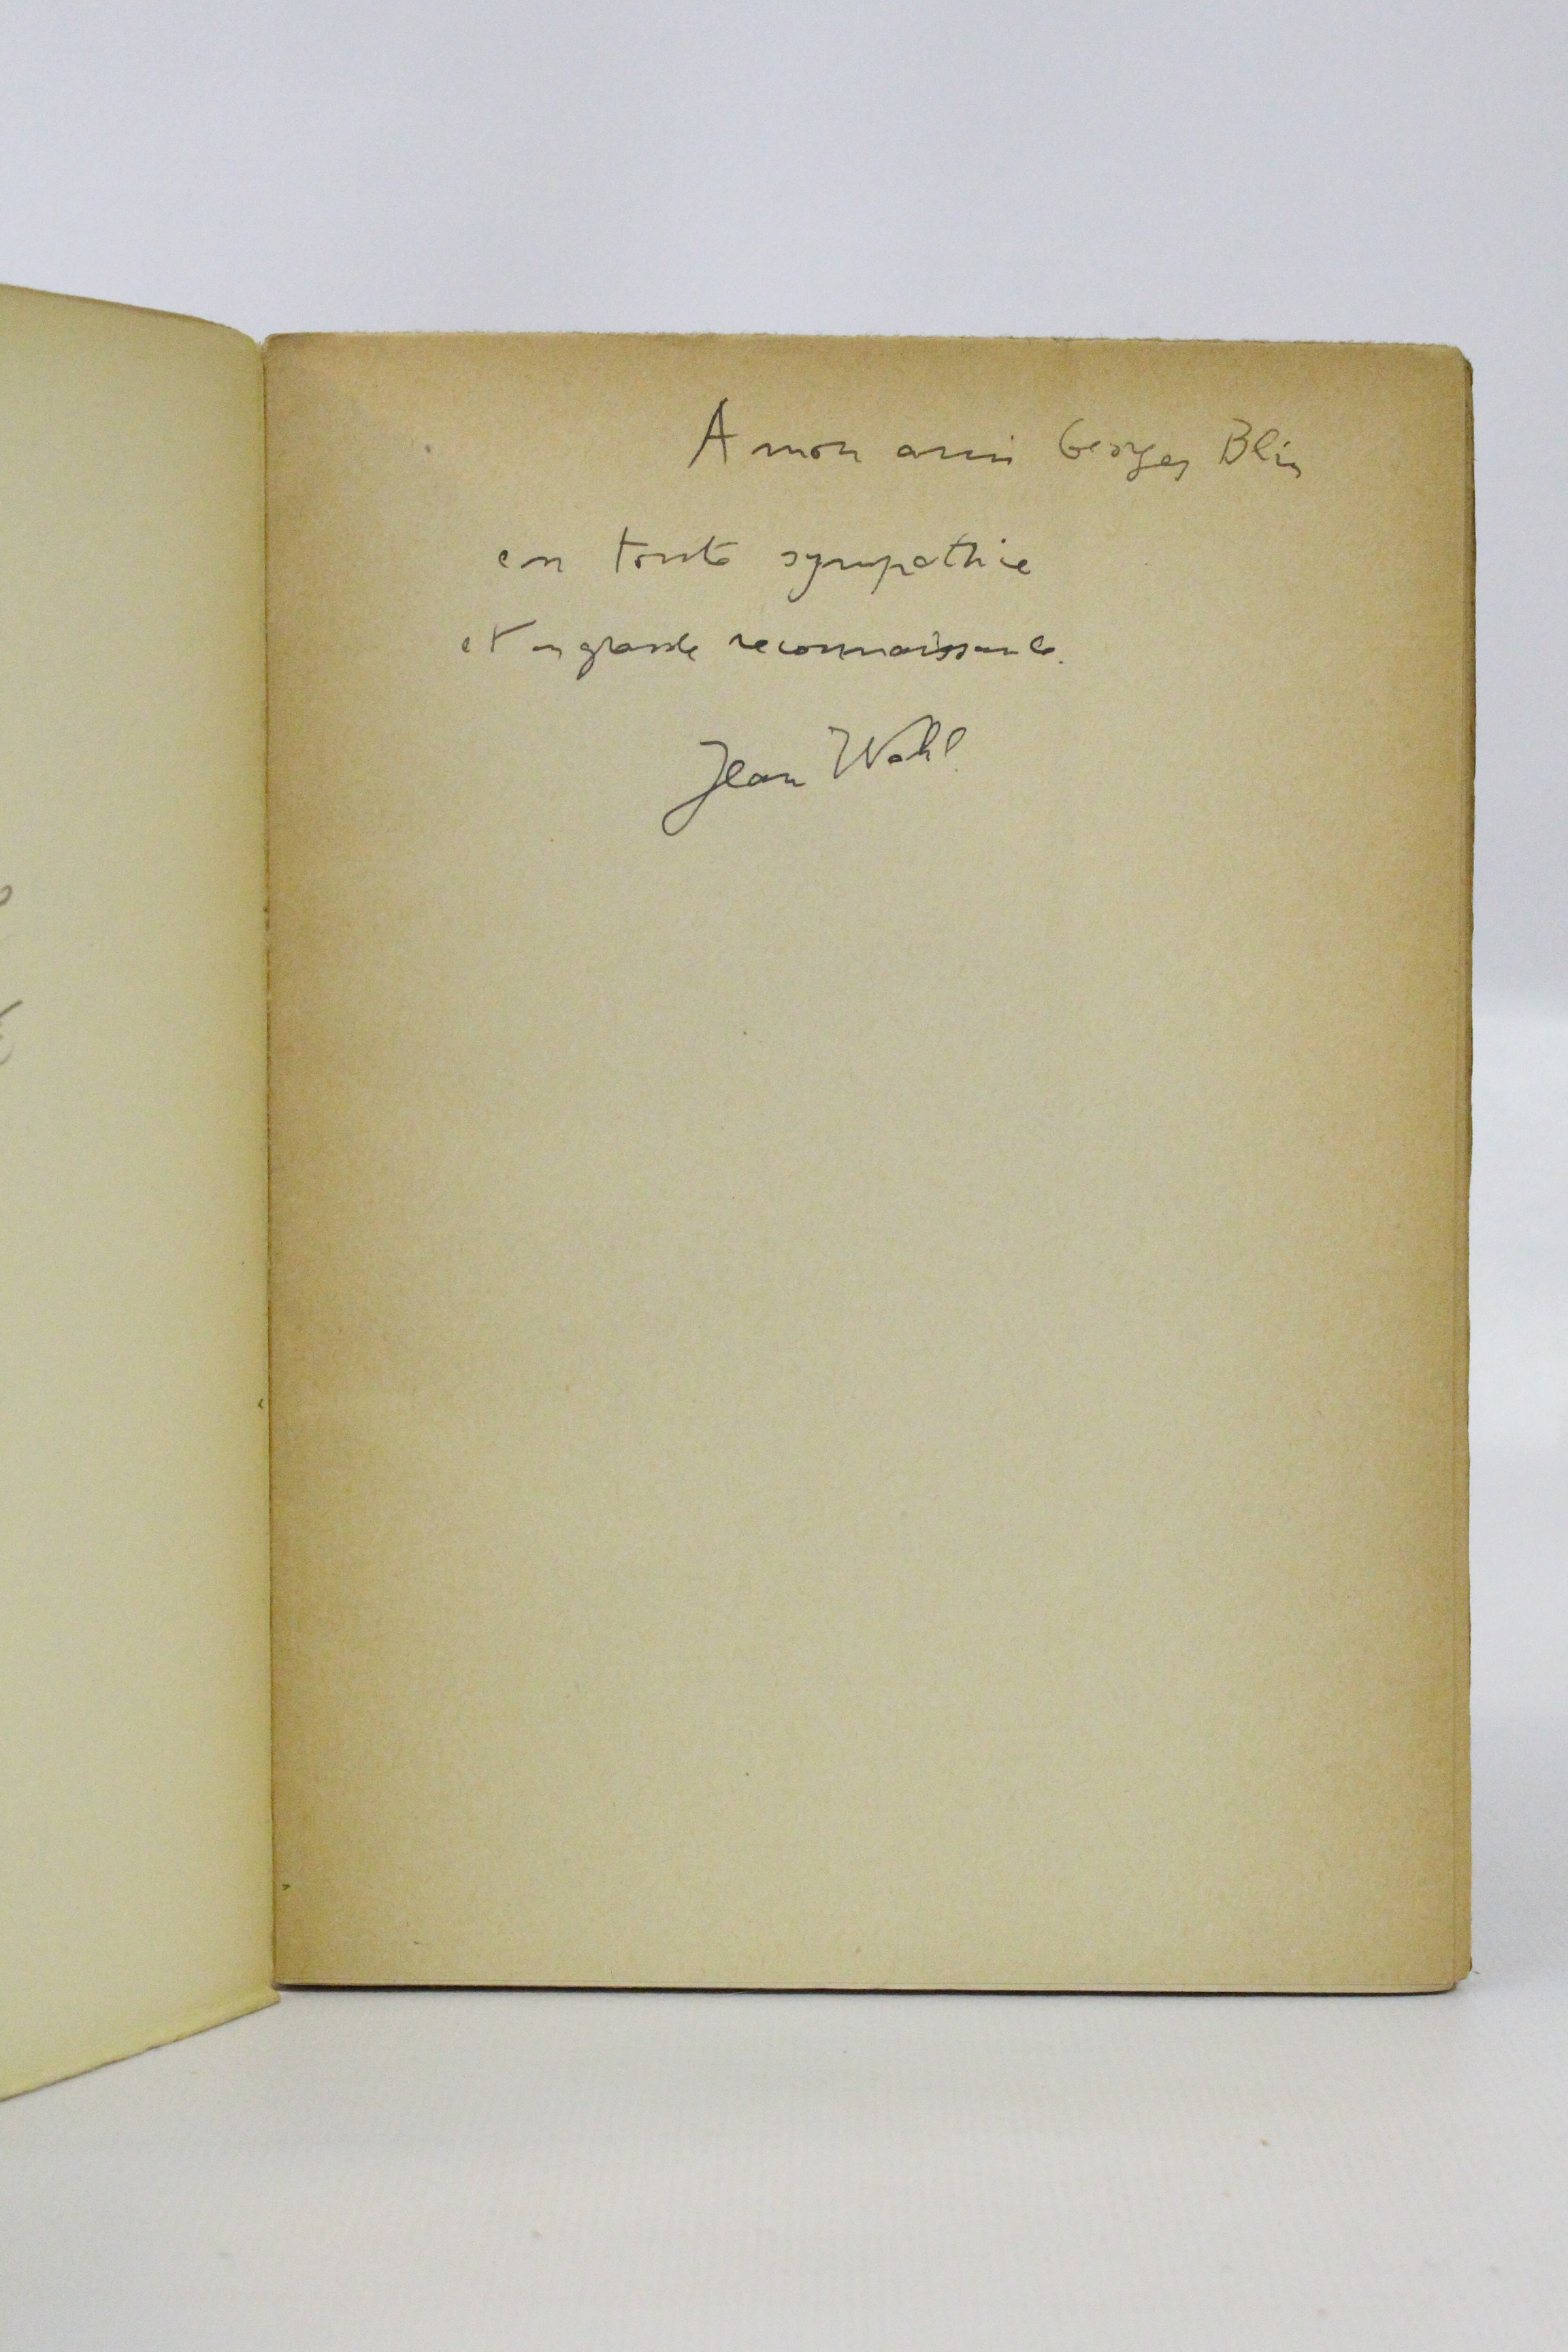 A mon ami Georges Blin
en toute sympathie
et en grande reconnaissance.
Jean Wahl